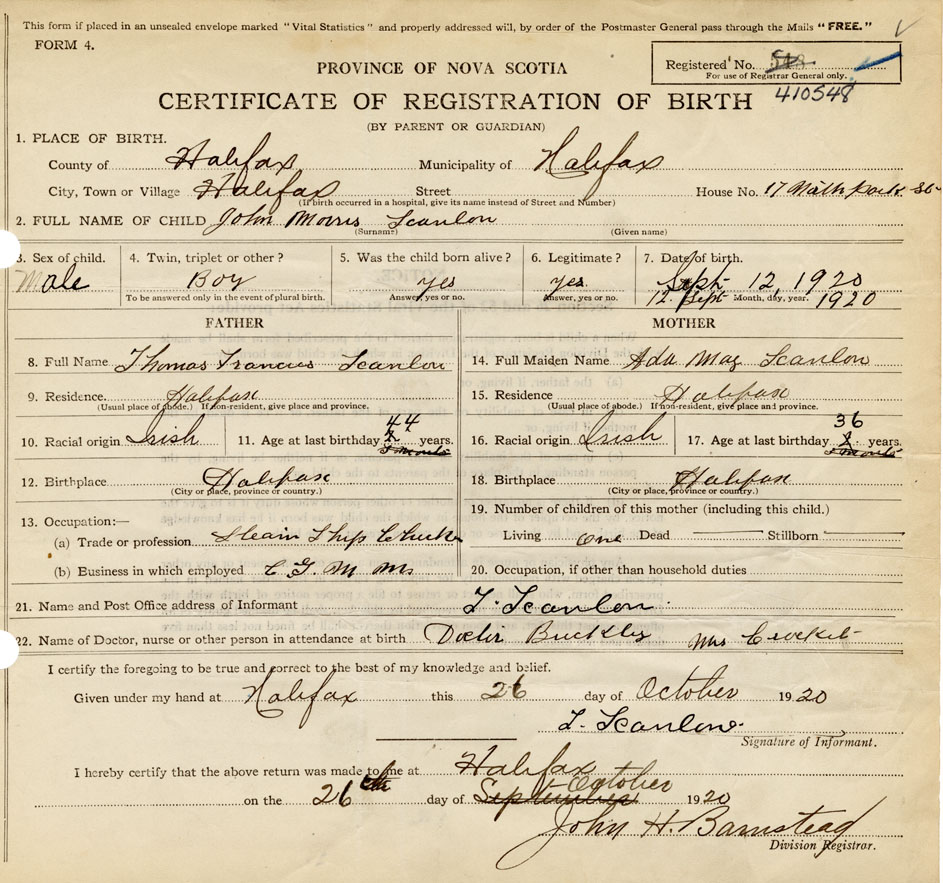 This form if placed in an unsealed envelope marked "Vital Statistics" and properly addressed will, by order of the Postmaster General pass through the Mails "FREE."
FORM 4.
Registered No. 548
For use of Registrar General only.
410548
PROVINCE OF NOVA SCOTIA
CERTIFICATE OF REGISTRATION OF BIRTH
(BY PARENT OR GUARDIAN)
1. PLACE OF BIRTH.
County of Halifax Municipality of Halifax
City, Town or Village Halifax Street House No. 17 North Park St
(If birth occurred in a hospital, give its name instead of Street and Number)
2. FULL NAME OF CHILD John Morris Scanlon
(Surname) (Given name)
3. Sex of child. 4. Twin, triplet or other? 5. Was the child born alive? 6. Legitimate? 7. Date of birth.
Male Boy yes yes Sept 12, 1920
To be answered only in the event of plural birth. Answer, yes or no. Answer, yes or no. 12 Sept Month, day, year. 1920
FATHER MOTHER
8. Full Name Thomas Francis Scanlon 14. Full Maiden Name Ada May Scanlon
9. Residence. Halifax 15. Residence Halifax
(Usual place of abode.) If non-resident, give place and province. (Usual place of abode.) If non-resident, give place and province.
10. Racial origin Irish 11. Age at last birthday 44 years. 16. Racial origin Irish 17. Age at last birthday 36 years.
12. Birthplace Halifax 18. Birthplace Halifax
(City or place, province or country.) (City or place, province or country.)
13. Occupation:— 19. Number of children of this mother (including this child.)
(a) Trade or profession Steam Ship Living one Dead Stillborn
(b) Business in which employed C G M M 20. Occupation, if other than household duties
21. Name and Post Office address of Informant T. Scanlon
22. Name of Doctor, nurse or other person in attendance at birth Doctor Buckley Mrs
I certify the foregoing to be true and correct to the best of my knowledge and belief.
Given under my hand at Halifax this 26 day of October 1920
T. Scanlon
Signature of Informant.
I hereby certify that the above return was made to me at Halifax
October
on the 26th day of September 1920
John H. Barnstead
Division Registrar.